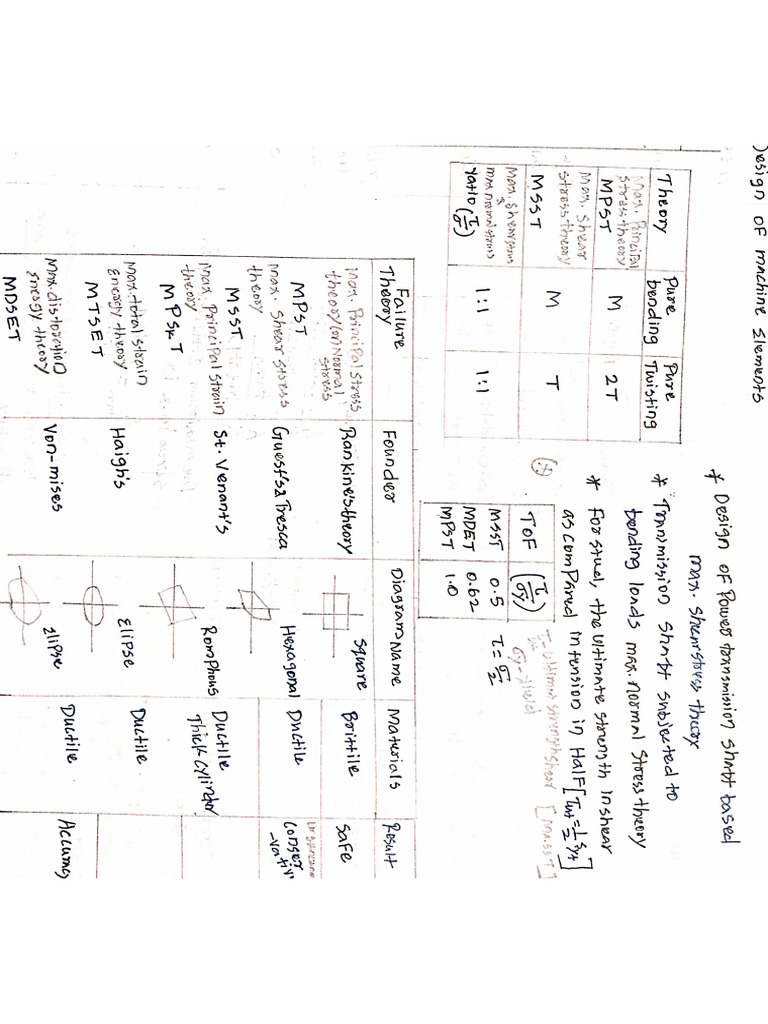 Design of machine Elements
Theory
Pure bending
Pure Twisting
Max. Principal stress theory
MPST
M
2T
Max. Shear stress theory
MSST
M
T
Max. Shear stress
max. normal stress
ratio (τ/σ)
1:1
1:1
* Design of Power transmission shaft based
max. shear stress theory
* Transmission shaft subjected to
bending loads max. normal stress theory
* For stual, the ultimate strength in shear
as compared in tension in Half [τut = 1/2 Syt]
TOF
(τ/σy)
MSST 0.5
MDET 0.62
MPST 1.0
τ = σ/2
τ - ultimat strength shear [MassT]
σy - yield
Failure Theory
Founder
Diagram Name
Materials
Result
Max. Principal stress
theory (or) Normal
stress
MPST
Rankine's theory
Square
Brittile
safe
Max. Shear stress
theory
MSST
Guest's & Tresca
Hexagonal
Ductile
Conser
-vativ
Max. Principal strain
theory
MPSt T
St. Venant's
Romphous
Ductile
Thick cylinder
Max. total strain
energy theory
MTSET
Haigh's
Ellipse
Ductile
Max. distoration
energy theory
MDSET
Von-mises
Elipse
Ductile
Accurng